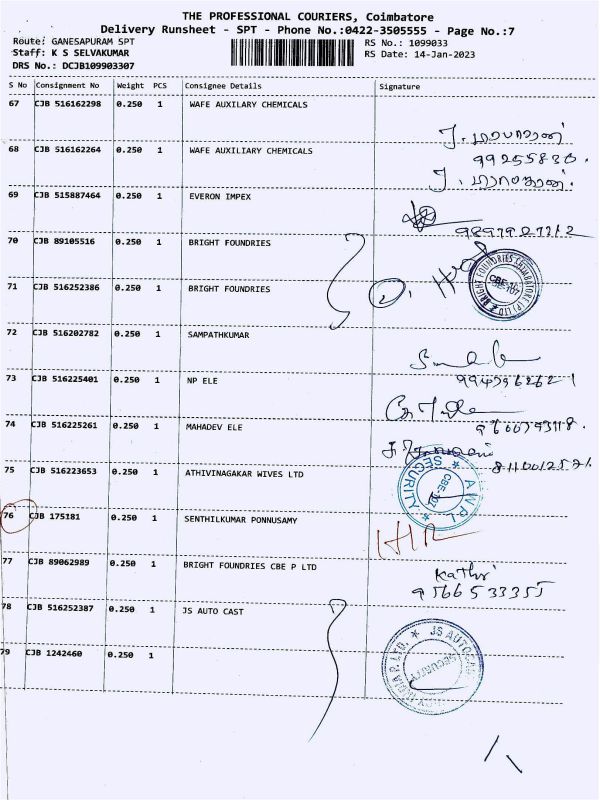 THE PROFESSIONAL COURIERS, Coimbatore
Delivery Runsheet - SPT - Phone No.:0422-3505555 - Page No.:7
Route: GANESAPURAM SPT
Staff: K S SELVAKUMAR
DRS No.: DCJB109903307
RS No.: 1099033
RS Date: 14-Jan-2023
S No Consignment No Weight PCS Consignee Details Signature
67 CJB 516162298 0.250 1 WAFE AUXILARY CHEMICALS
68 CJB 516162264 0.250 1 WAFE AUXILIARY CHEMICALS
69 CJB 515887464 0.250 1 EVERON IMPEX
70 CJB 89105516 0.250 1 BRIGHT FOUNDRIES
71 CJB 516252386 0.250 1 BRIGHT FOUNDRIES
72 CJB 516202782 0.250 1 SAMPATHKUMAR
73 CJB 516225401 0.250 1 NP ELE
74 CJB 516225261 0.250 1 MAHADEV ELE
75 CJB 516223653 0.250 1 ATHIVINAGAKAR WIVES LTD
AWPL
SECURITY
76 CJB 175181 0.250 1 SENTHILKUMAR PONNUSAMY
77 CJB 89062989 0.250 1 BRIGHT FOUNDRIES CBE P LTD
Kathi
9566533355
78 CJB 516252387 0.250 1 JS AUTO CAST
79 CJB 1242460 0.250 1
JS AUTOCAST
SECURITY